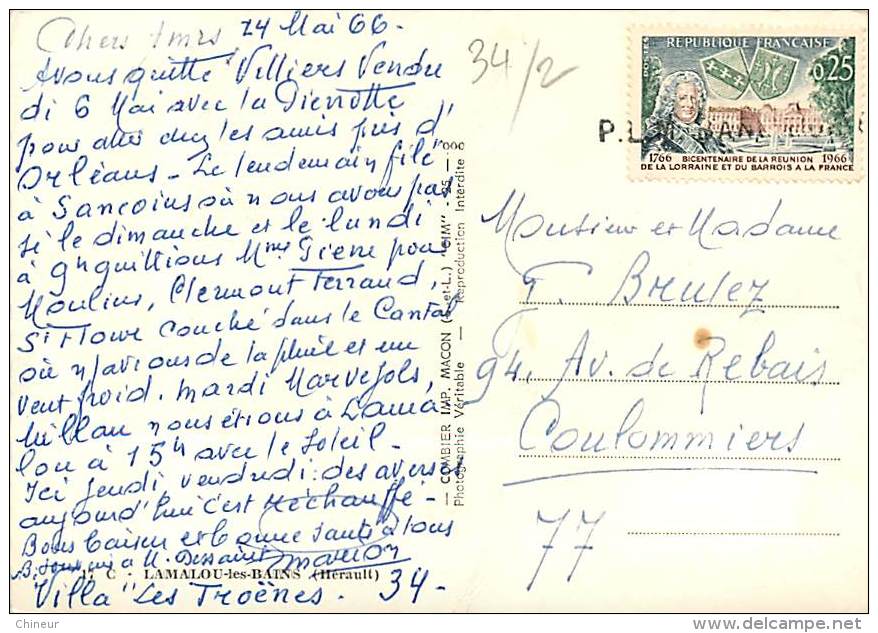 Chers Amis, 14 Mai 66.
Avons quitté Villiers Vendre
di 6 Mai avec la Pierrotte
pour aller chez les amis près d'
Orléans - Le lendemain filé
à Sancoins où nous avons pas
sé le dimanche et le lundi
à 9h quittions Mme Pierre pour
Moulins, Clermont Ferrand,
St Flour couché dans le Cantal
où n/avions de la pluie et un
vent froid. mardi Marvejols,
Millau nous étions à Lama
lou à 15h avec le Soleil -
Ici jeudi vendredi : des averses
aujourd'hui c'est réchauffé -
Bons baisers et bonne santé à tous
à M.
17 C - LAMALOU-les-BAINS (Hérault)
Villa "Les Troënes. 34 -
34/2
COMBIER IMP. MACON (S.-et-L.) "CIM"
Photographie Véritable — Reproduction Interdite
POSTES
RÉPUBLIQUE FRANÇAISE
0,25
1766 BICENTENAIRE DE LA REUNION 1966
DE LA LORRAINE ET DU BARROIS A LA FRANCE
Monsieur et Madame
Brulez
94, Av. de Rebais
Coulommiers
77
Chineur
delcampe.net